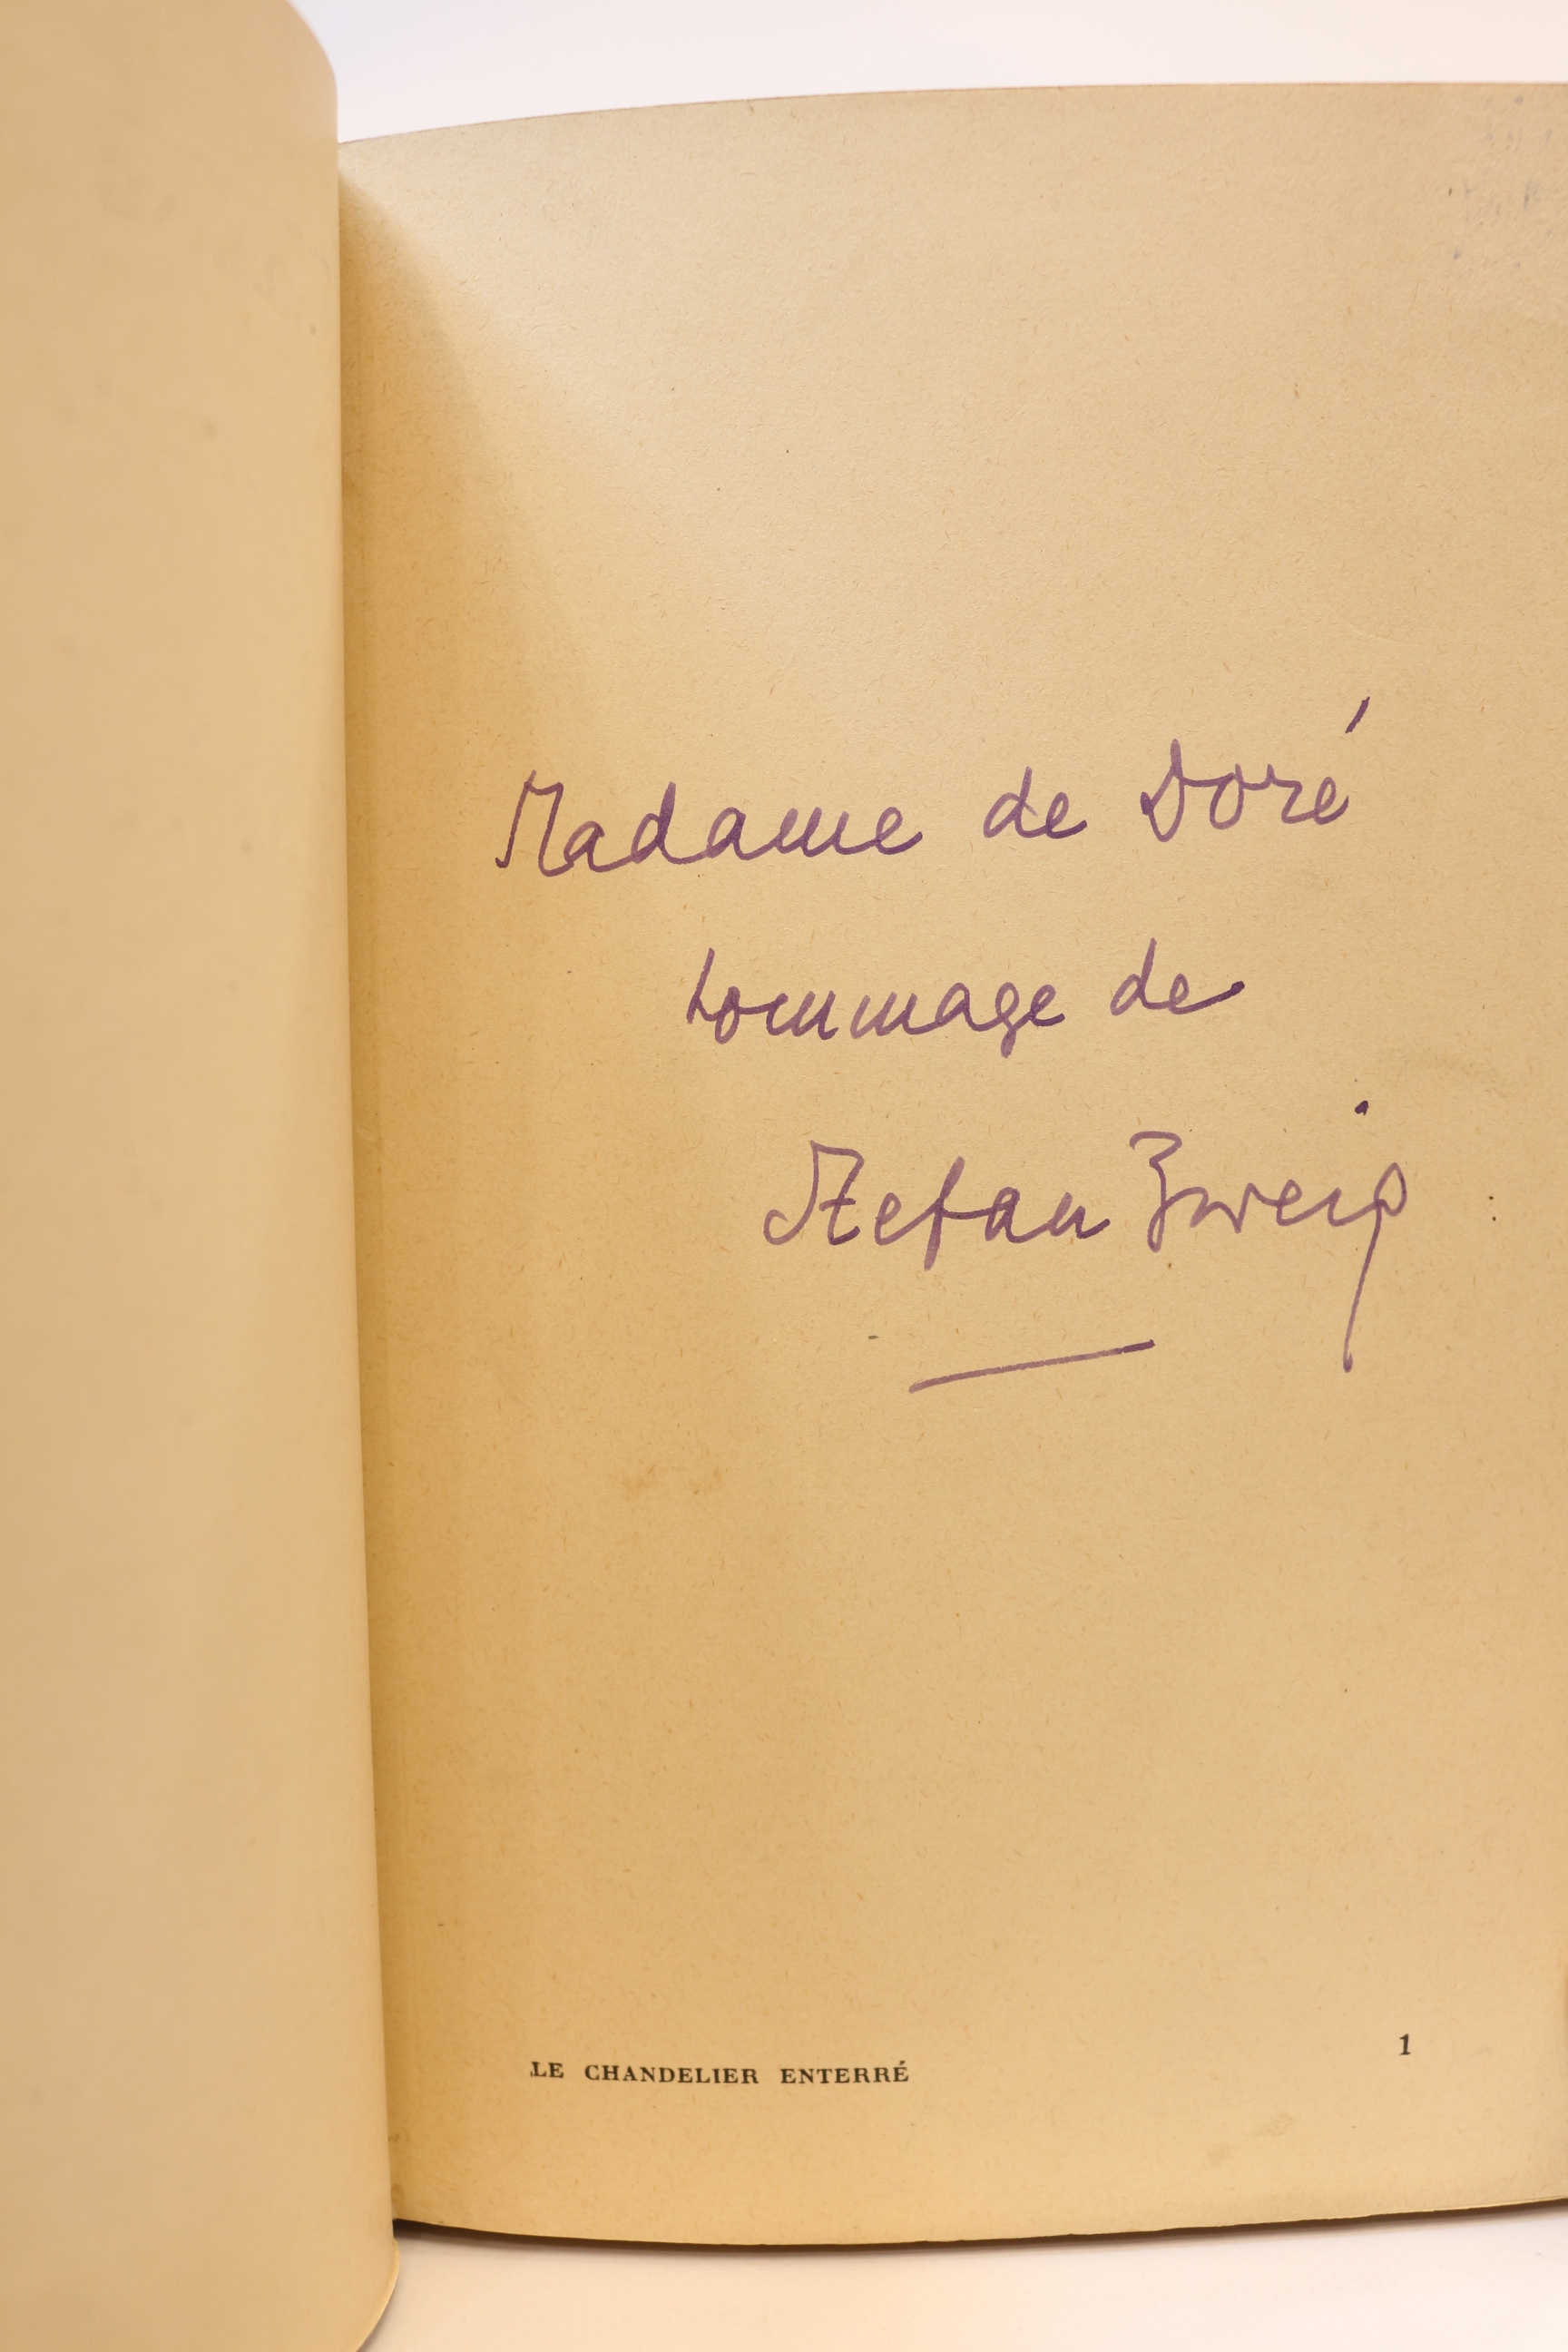 Madame de Doré
hommage de
Stefan Zweig
LE CHANDELIER ENTERRÉ
1